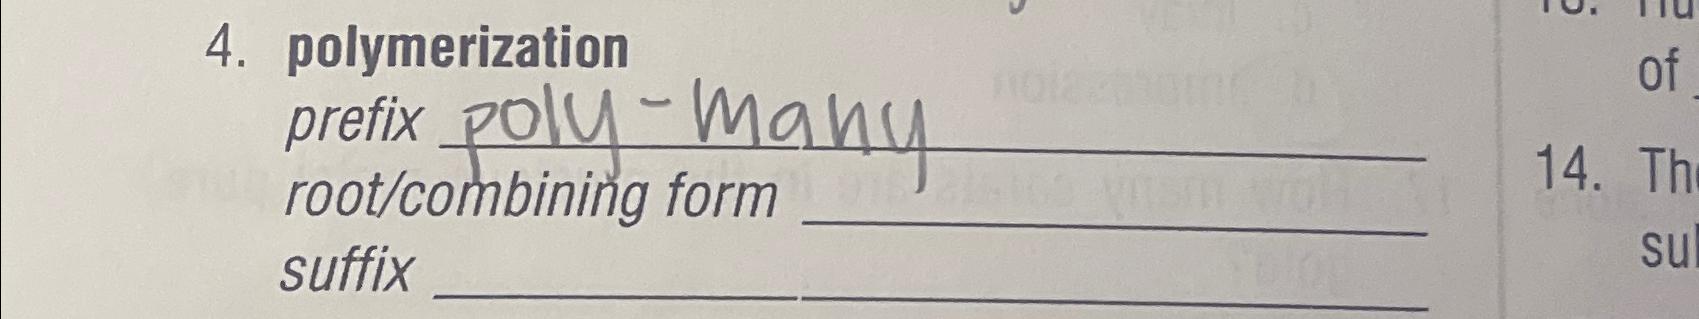 4. polymerization
prefix poly - many
root/combining form
suffix
of
14. Th